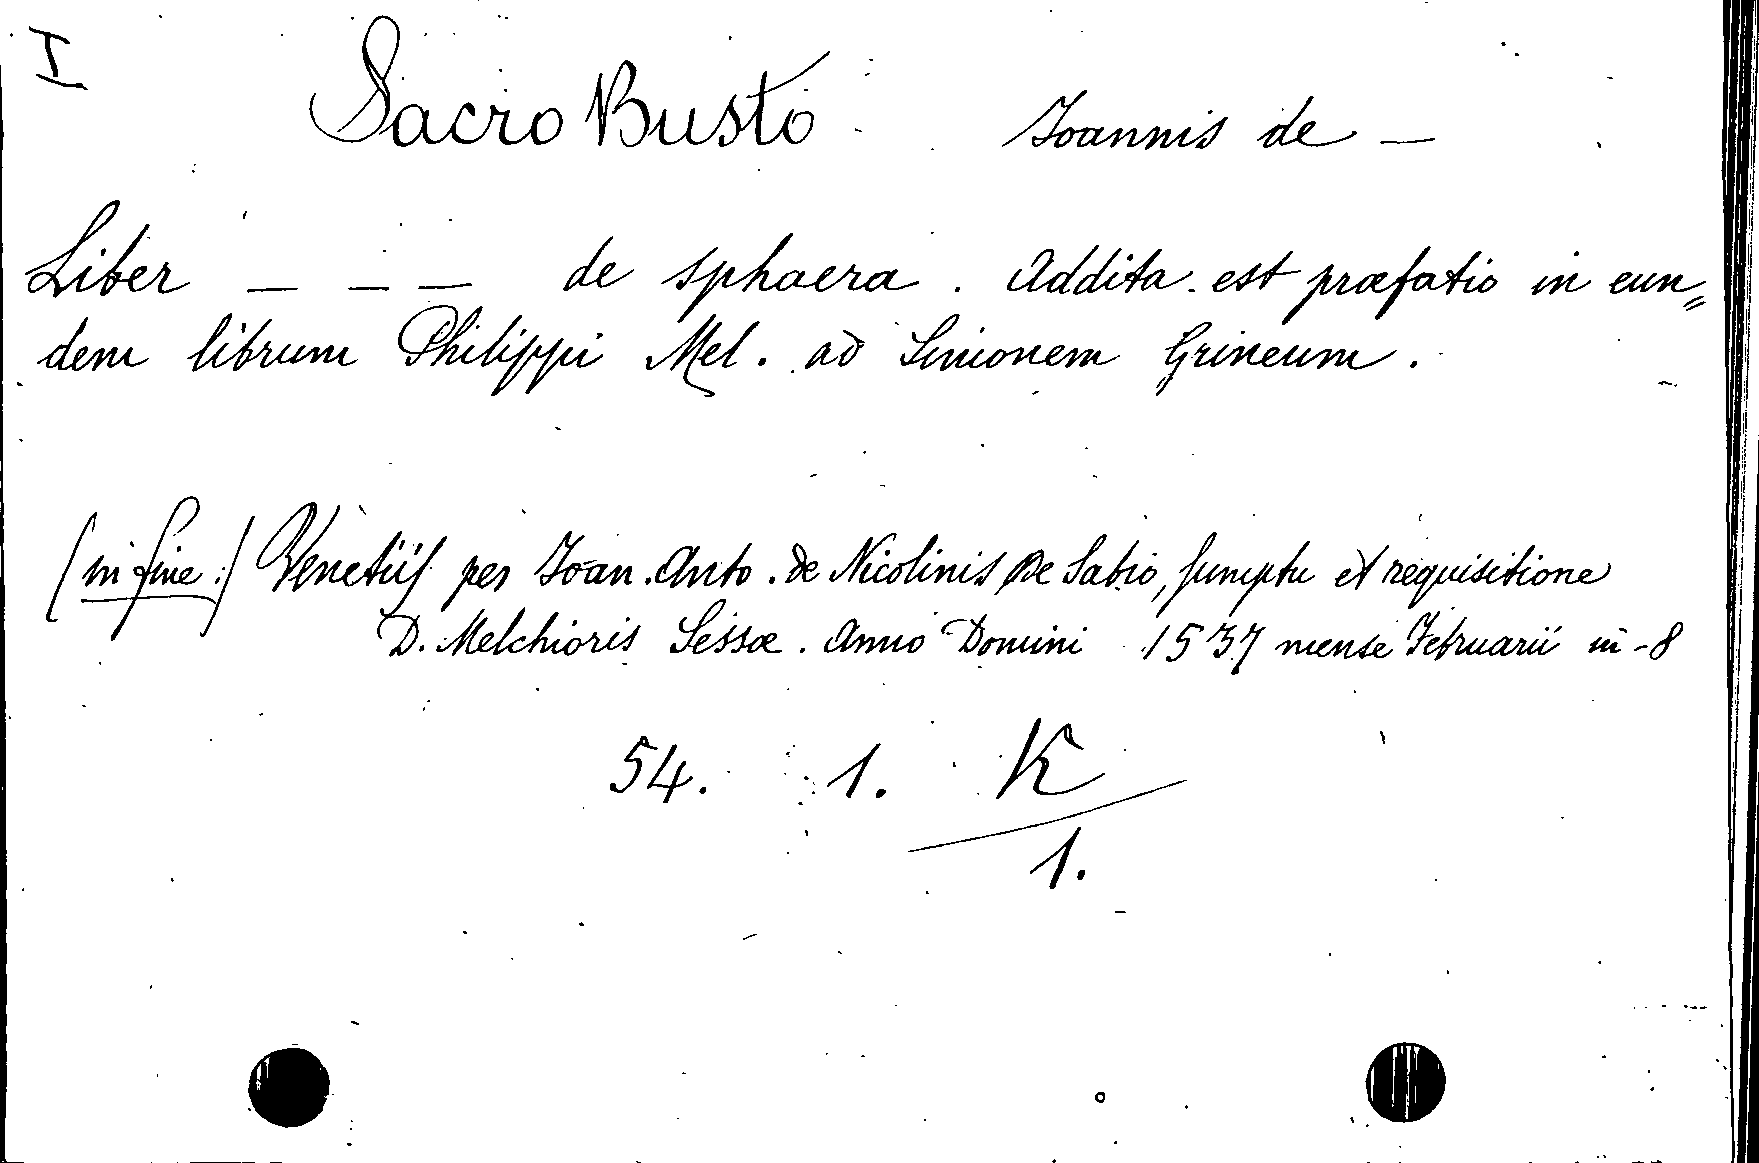 I
Sacro Busto Joannis de —
Liber — — — de sphaera. Addita est præfatio in eun=
dem librum Philippi Mel. ad Simonem Grineum.
(in fine:) Venetiis per Joan. Anto. de Nicolinis de Sabio, sumptu et requisitione
D. Melchioris Sessæ. Anno Domini 1537 mense Februarii in-8
54. 1. K
1.